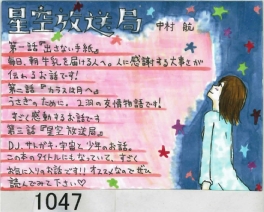 星空放送局
中村 航
第一話『出さない手紙』
毎日、朝牛乳を届ける人へ。人に感謝する大事さが
伝わるお話です!
第二話『カラスは月へ』
うさぎのために、2羽の友情物語です!
すごく感動するお話です
第三話『星空放送局』
DJ、サボテン、宇宙と少年のお話。
この本のタイトルにもなっていて、すごく
お気に入りのお話です!! オススメなのでぜひ
読んでみて下さい♡
1047